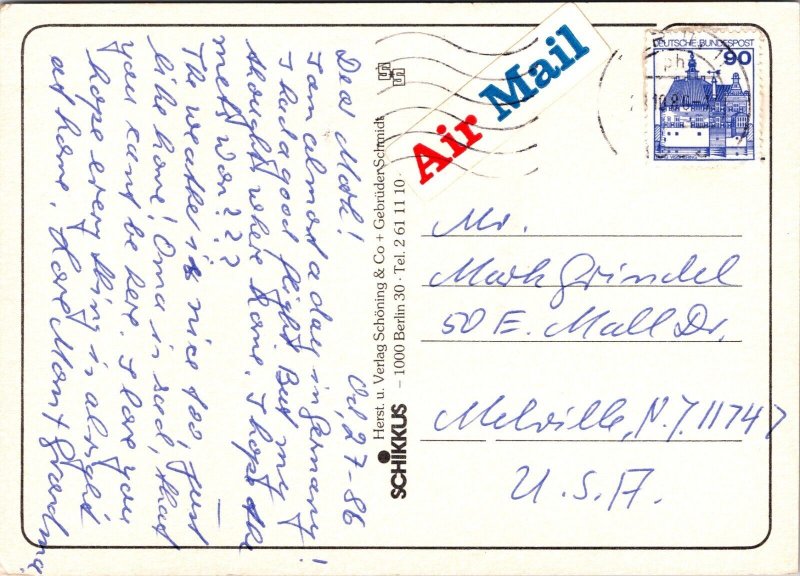 Dear Mark! Oct, 27-86
I am almost a day in Germany!
I had a good flight. But my
thoughts where home. I hope the
mets won???
The weather is nice too, just
like home! Oma is sad, that
you kant be here. I love you
I hope every thing is alright
at home. Love Mom + Grandma
SCHIKKUS
Herst. u. Verlag Schöning & Co + Gebrüder Schmidt
– 1000 Berlin 30 · Tel. 2 61 11 10
Air Mail
DEUTSCHE BUNDESPOST
90
Mr.
Mark Grindel
50 E. Mall Dr.
Melville, N.Y. 11747
U.S.A.